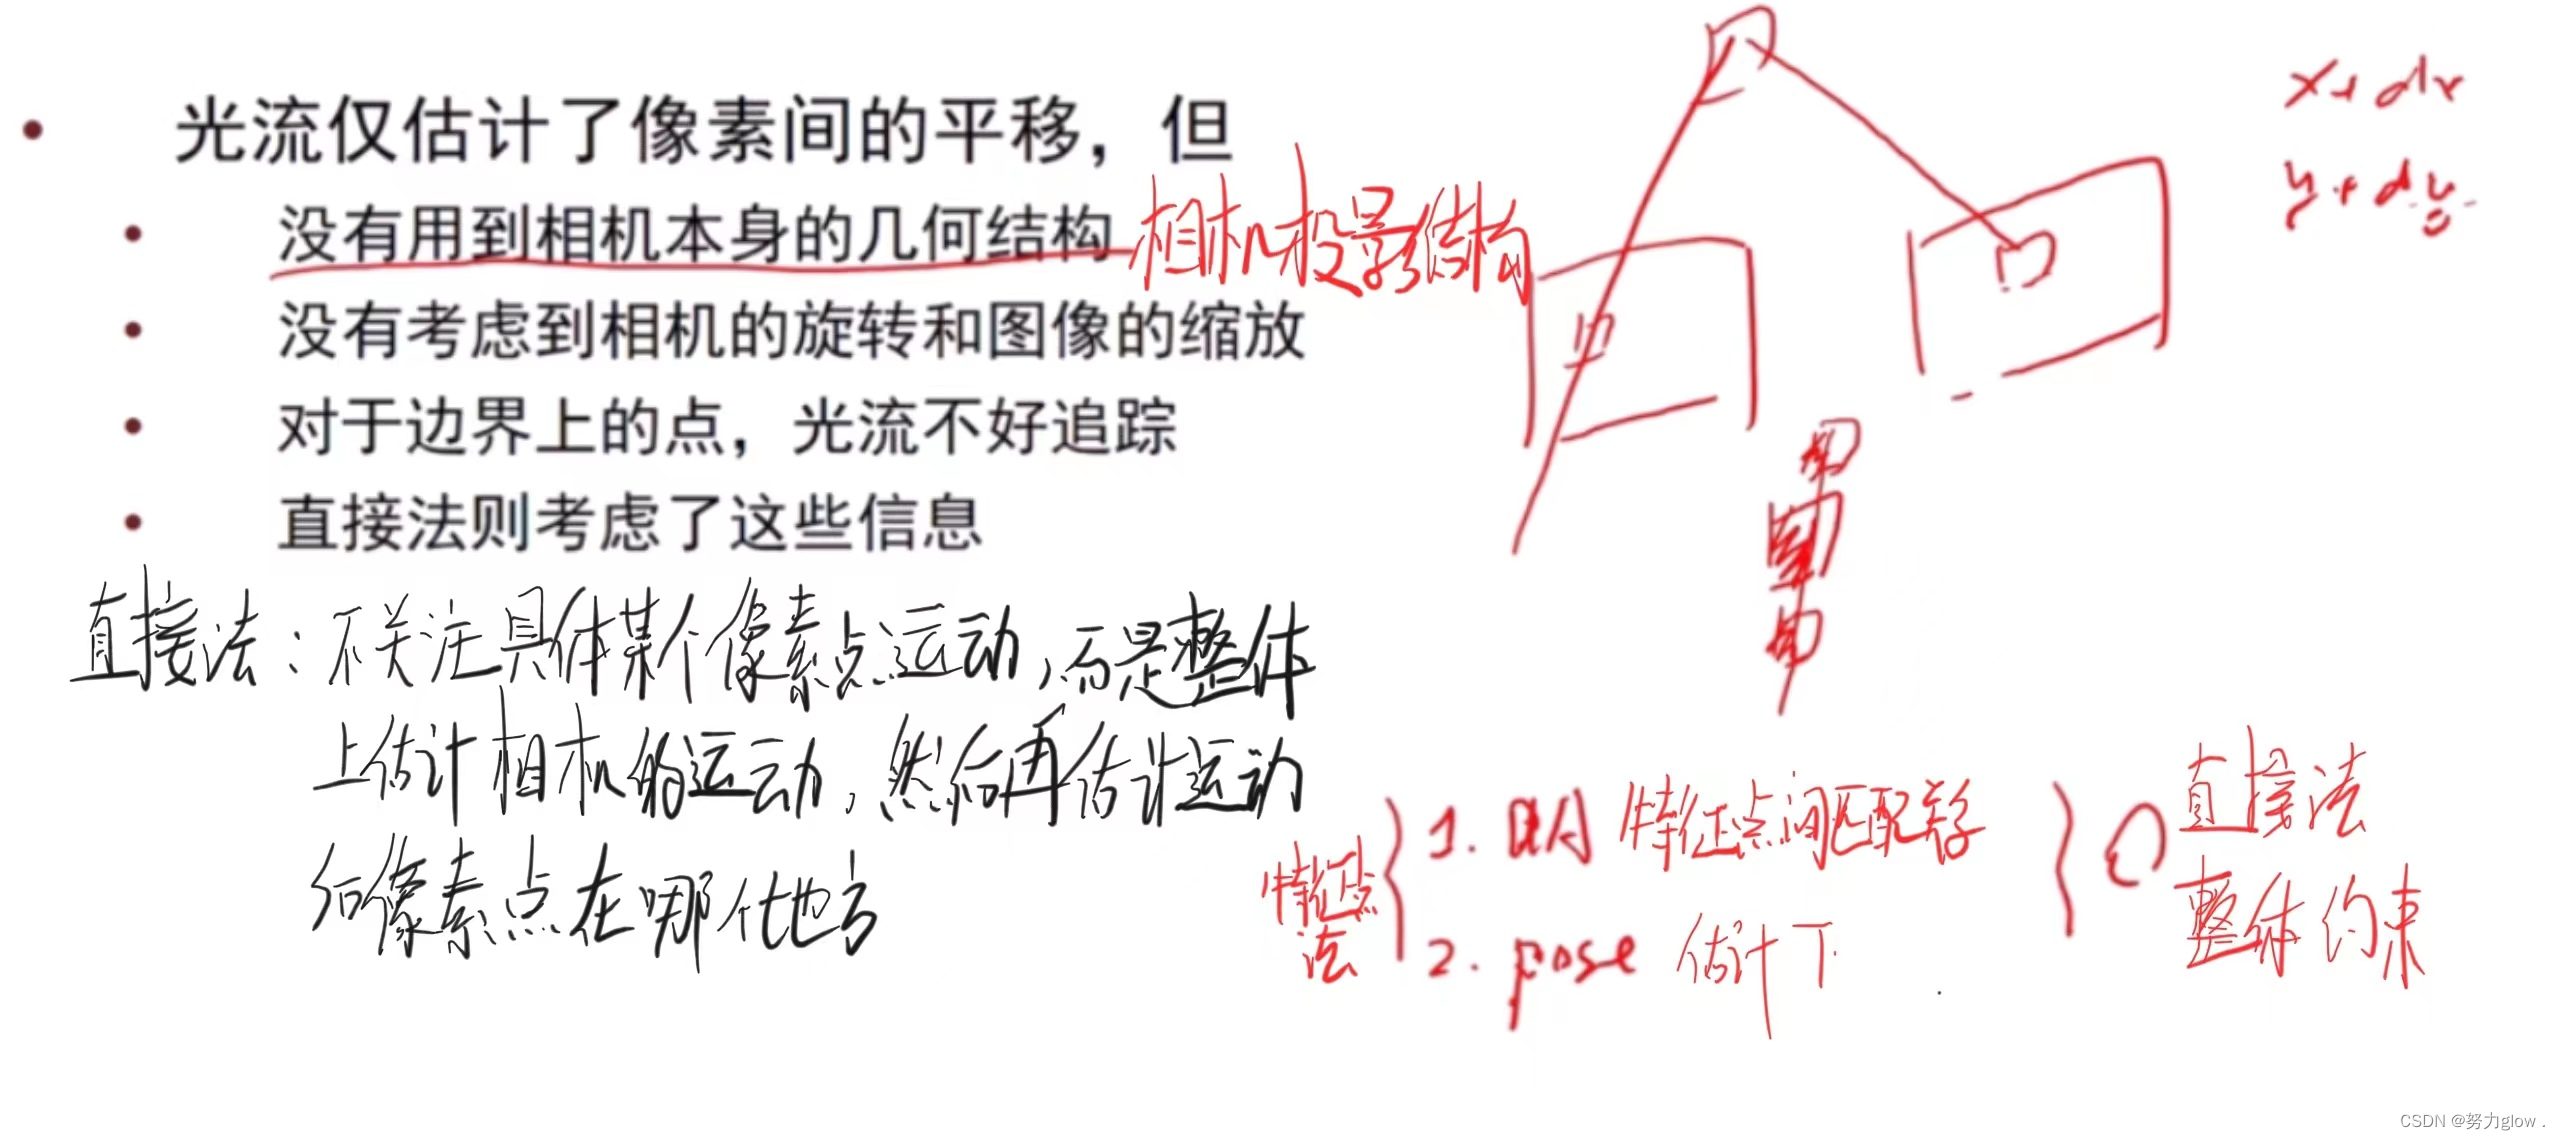 光流仅估计了像素间的平移，但
没有用到相机本身的几何结构
相机投影结构
没有考虑到相机的旋转和图像的缩放
对于边界上的点，光流不好追踪
直接法则考虑了这些信息
x+dx
y+dy
直接法：不关注具体某个像素点运动，而是整体
上估计相机的运动，然后再估计运动
后像素点在哪个地方
特征点
法
1. 特征点间匹配关系
2. pose 估计 T
直接法
整体约束
CSDN @努力glow .